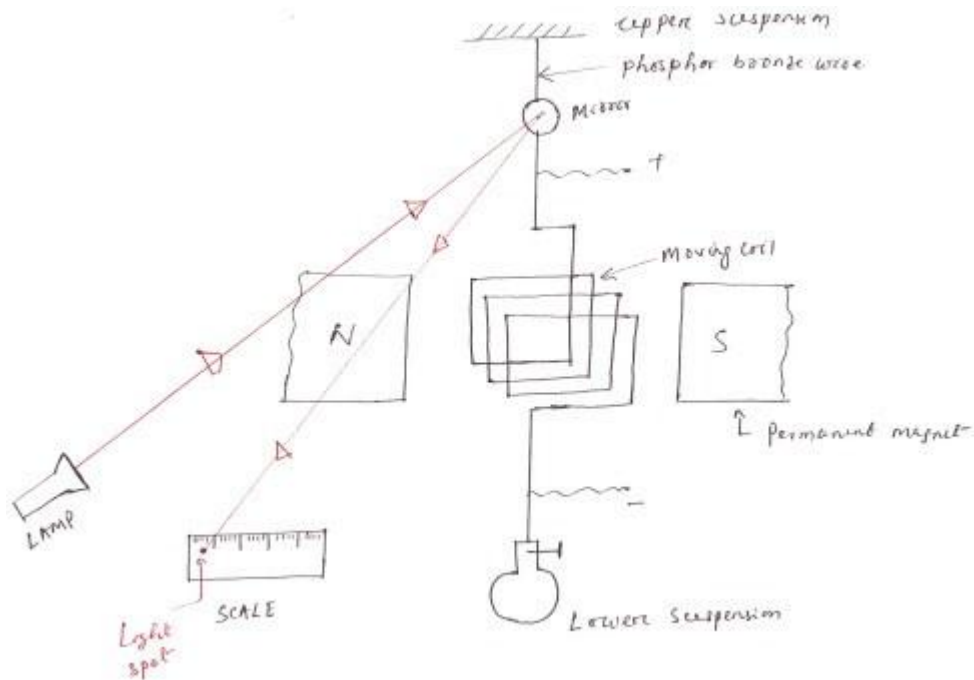 upper suspension
phosphor bronze wire
Mirror
+
Moving coil
N
S
permanent magnet
LAMP
-
SCALE
Light
spot
Lower suspension